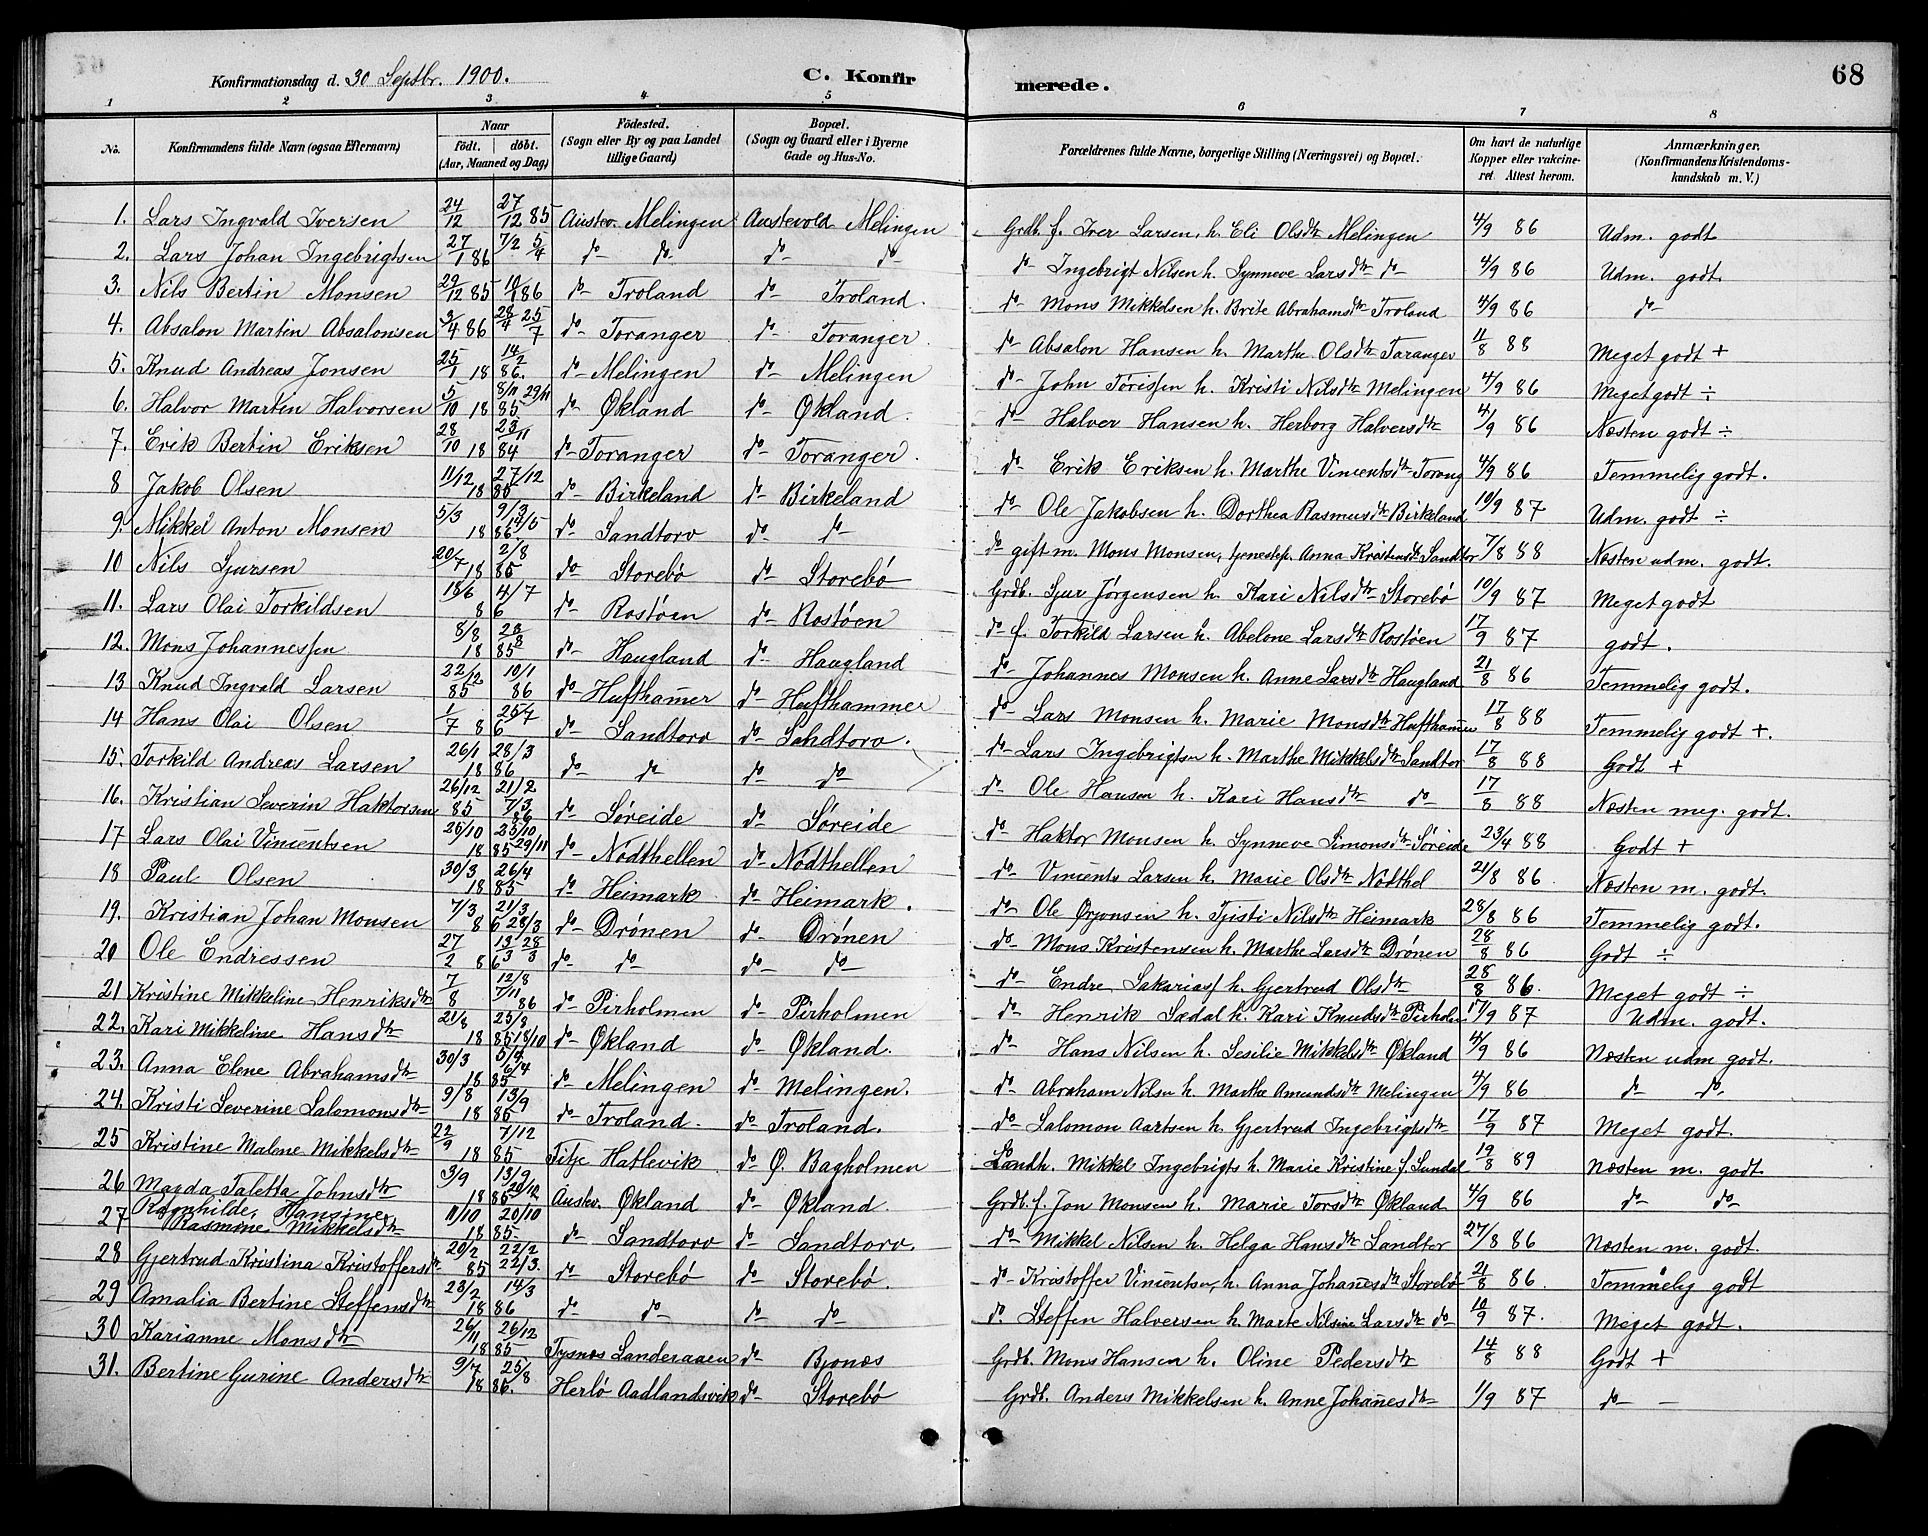 Konfirmationsdag d. 30 Septbr. 1900.
C. Konfirmerede.
68
1 2 3 4 5 6 7 8
No.
Konfirmandens fulde Navn (ogsaa Efternavn)
Naar
født. | døbt.
(Aar, Maaned og Dag)
Fødested.
(Sogn eller By og paa Landet
tillige Gaard)
Bopæl.
(Sogn og Gaard eller i Byerne
Gade og Hus-No.
Forældrenes fulde Navne, borgerlige Stilling (Næringsvei) og Bopæl.
Om havt de naturlige
Kopper eller vakcine-
ret. Attest herom.
Anmærkninger.
(Konfirmandens Kristendoms-
kundskab m. V.)
1. Lars Ingvald Iversen 24/12 27/12 85 Austev. Melingen Austevold Melingen Grdb. f. Iver Larsen, h. Eli Olsdtr Melingen 4/9 86 Udm. godt
2. Lars Johan Ingebrigtsen 27/1 86 7/2 5/4 do do do do do Ingebrigt Nilsen h. Synneve Larsdtr do 4/9 86 Udm. godt.
3. Nils Bertin Monsen 29/12 85 10/1 86 do Troland do Troland. do Mons Mikkelsen h. Brite Abrahamsdtr Troland 4/9 86 do
4. Absalon Martin Absalonsen 3/4 86 28/4 25/7 do Toranger do Toranger. do Absalon Hansen h. Marthe Olsdtr Taranger 11/8 88 Meget godt +
5. Knud Andreas Jonsen 25/1 14/2 1886. do Melingen do Melingen do John Tørissen h. Kristi Nilsdtr Melingen 4/9 86 Meget godt ÷
6. Halvor Martin Halvorsen 5/10 8/11 29/11 1885 do Økland do Økland. do Halver Hansen h. Herborg Halversdtr 4/9 86 Næsten godt ÷
7. Erik Bertin Eriksen 28/10 23/11 1884 do Toranger do Toranger. do Erik Eriksen h. Marthe Vincentsdtr Torang 4/9 86 Temmelig godt.
8 Jakob Olsen 11/12 27/12 1885 do Birkeland do Birkeland do Ole Jakobsen h. Dorthea Rasmusdtr Birkeland 10/9 87 Udm. godt ÷
9. Mikkel Anton Monsen 5/3 9/3 1886 do Sandtorv do do do gift m. Mons Monsen, tjenestep. Anna Kristensdtr Sandtor 7/8 88 Næsten udm. godt.
10 Nils Sjursen 20/7 2/8 1885 do Storebø do Storebø Grdb. Sjur Jørgensen h. Kari Nilsdtr Storebø 10/9 87 Meget godt
11. Lars Olai Torkildsen 18/6 4/7 86 do Rostøen do Rostøen do f. Torkild Larsen h. Abelone Larsdtr Rostøen 17/9 87 godt.
12. Mons Johannessen 8/8 23/8 1885 do Haugland do Haugland do Johannes Monsen h. Anne Larsdtr Haugland 21/8 86 Temmelig godt.
13 Knud Ingvald Larsen 22/12 85 10/1 86 do Hufthamer do Hufthammer do Lars Monsen h. Marie Monsdtr Hufthamer 17/8 88 Temmelig godt +.
14 Hans Olai Olsen 1/7 25/7 86 do Sandtorv do Sandtorv. do Lars Ingebrigtsen h. Marthe Mikkelsdtr Sandtor 17/8 88 Godt +
15. Torkild Andreas Larsen 26/1 28/3 1886 do do do do do Ole Hansen h. Kari Hansdtr do 17/8 88 Næsten meg. godt.
16. Kristian Severin Haktorsen 26/12 85 21/2 7/3 86 do Søreide do Søreide do Haktor Monsen h. Synneve Simonsdtr Søreide 23/4 88 Godt +
17 Lars Olai Vincentsen 26/10 25/10 29/11 1885 do Nødthellen do Nødthellen do Vincents Larsen h. Marie Olsdtr Nødthel 21/8 86 Næsten m. godt.
18 Paul Olsen 30/3 26/4 1885 do Heimark do Heimark. do Ole Ørjonsen h. Tjisti Nilsdtr Heimark 28/8 86 Temmelig godt.
19. Kristian Johan Monsen 7/3 21/3 28/3 86 do Drønen do Drønen do Mons Kristensen h. Marthe Larsdtr Drønen 28/8 86 Godt ÷
20 Ole Endressen 27/2 13/3 28/3 86 do do do do do Endre Sakariass h. Gjertrud Olsdtr 28/8 86. Meget godt ÷
21 Kristine Mikkeline Henriksdtr 7/8 12/8 7/11 86 do Pirholmen do Pirholmen do Henrik Sædal h. Kari Knudsdtr Pirholm 17/9 87 Udm. godt.
22. Kari Mikkeline Hansdtr 21/8 25/9 18/10 1885 do Økland do Økland. do Hans Nilsen h. Sesilie Mikkelsdtr Økland 4/9 86 Næsten udm godt.
23. Anna Elene Abrahamsdtr 30/3 5/4 6/4 1885 do Melingen do Melingen. do Abraham Nilsen h. Marthe Amundsdtr Melingen 4/9 86 do do
24. Kristi Severine Salomonsdtr 9/8 13/9 1885 do Troland. do Troland. do Salomon Aartsen h. Gjertrud Ingebrigtsdtr 17/9 87 Meget godt.
25 Kristine Malene Mikkelsdtr 22/9 7/12 1885 Fitje Hatlevik do Ø. Bagholmen Landh. Mikkel Ingebrigts h. Marie Kristine f. Sundal 19/8 89 Næsten m. godt
26 Magda Taletta Johnsdtr 3/9 13/9 20/12 1885 Austev. Økland do Økland. Grdb. f. Jon Monsen h. Marie Torsdtr Økland 4/9 86 do do
27 Ragnhilde, Hansine Rasmine Mikkelsdtr 11/10 20/10 1885 do Sandtorv do Sandtorv. do Mikkel Nilsen h. Helga Hansdtr Sandtor 27/8 86 Næsten m. godt.
28 Gjertrud Kristina Kristoffersdtr 20/2 22/2 22/3. 85 do Storebø do Storebø. do Kristoffer Vincentsen, h. Anna Johanesdtr Storebø 21/8 86. Temmelig godt
29 Amalia Bertine Steffensdtr 23/2 14/3 1886 do do do do do. Steffen Halversen h. Marte Nilsine Larsdtr do 10/9 87. Meget godt.
30 Karianne Monsdtr 26/11 26/12 1885 Tysnæs Landeraaen do Bjonæs Grdb. Mons Hansen h. Oline Pedersdtr 14/8 88 Godt +
31. Bertine Gurine Andersdtr 9/7 25/8 1886. Herlø Aadlandsvik do Storebø Grdb. Anders Mikkelsen h. Anne Johanesdtr 1/9 87 do